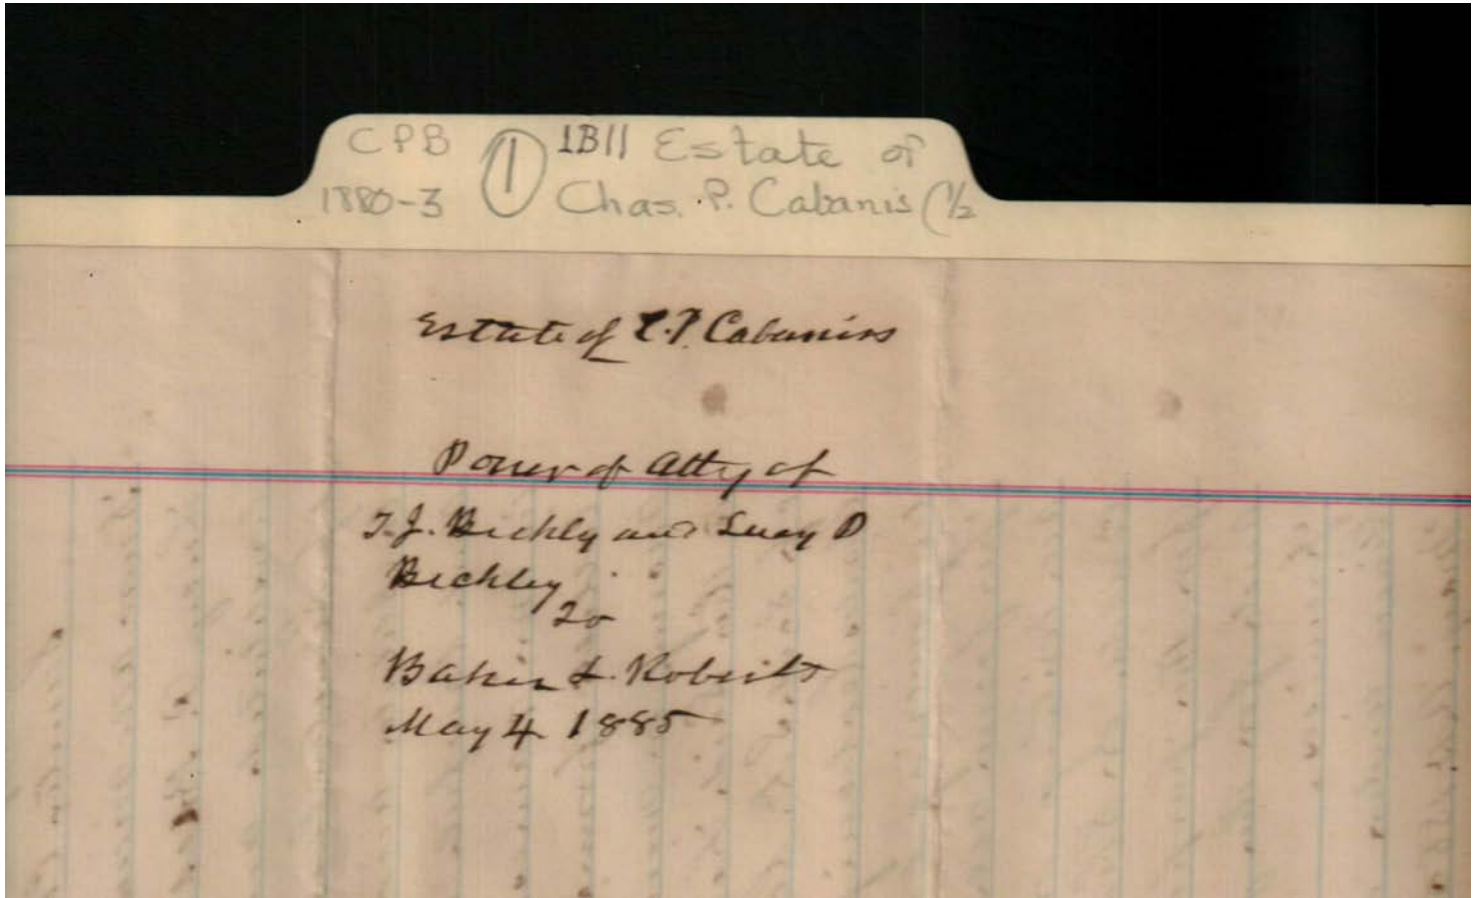 CPB ① 1B11 Estate of
1880-3 Chas. P. Cabanis (1/2
Estate of C.P. Cabaniss
Power of Atty of
T.J. Bickly and Lucy P
Bickley
To
Baker & Roberts
May 4 1885